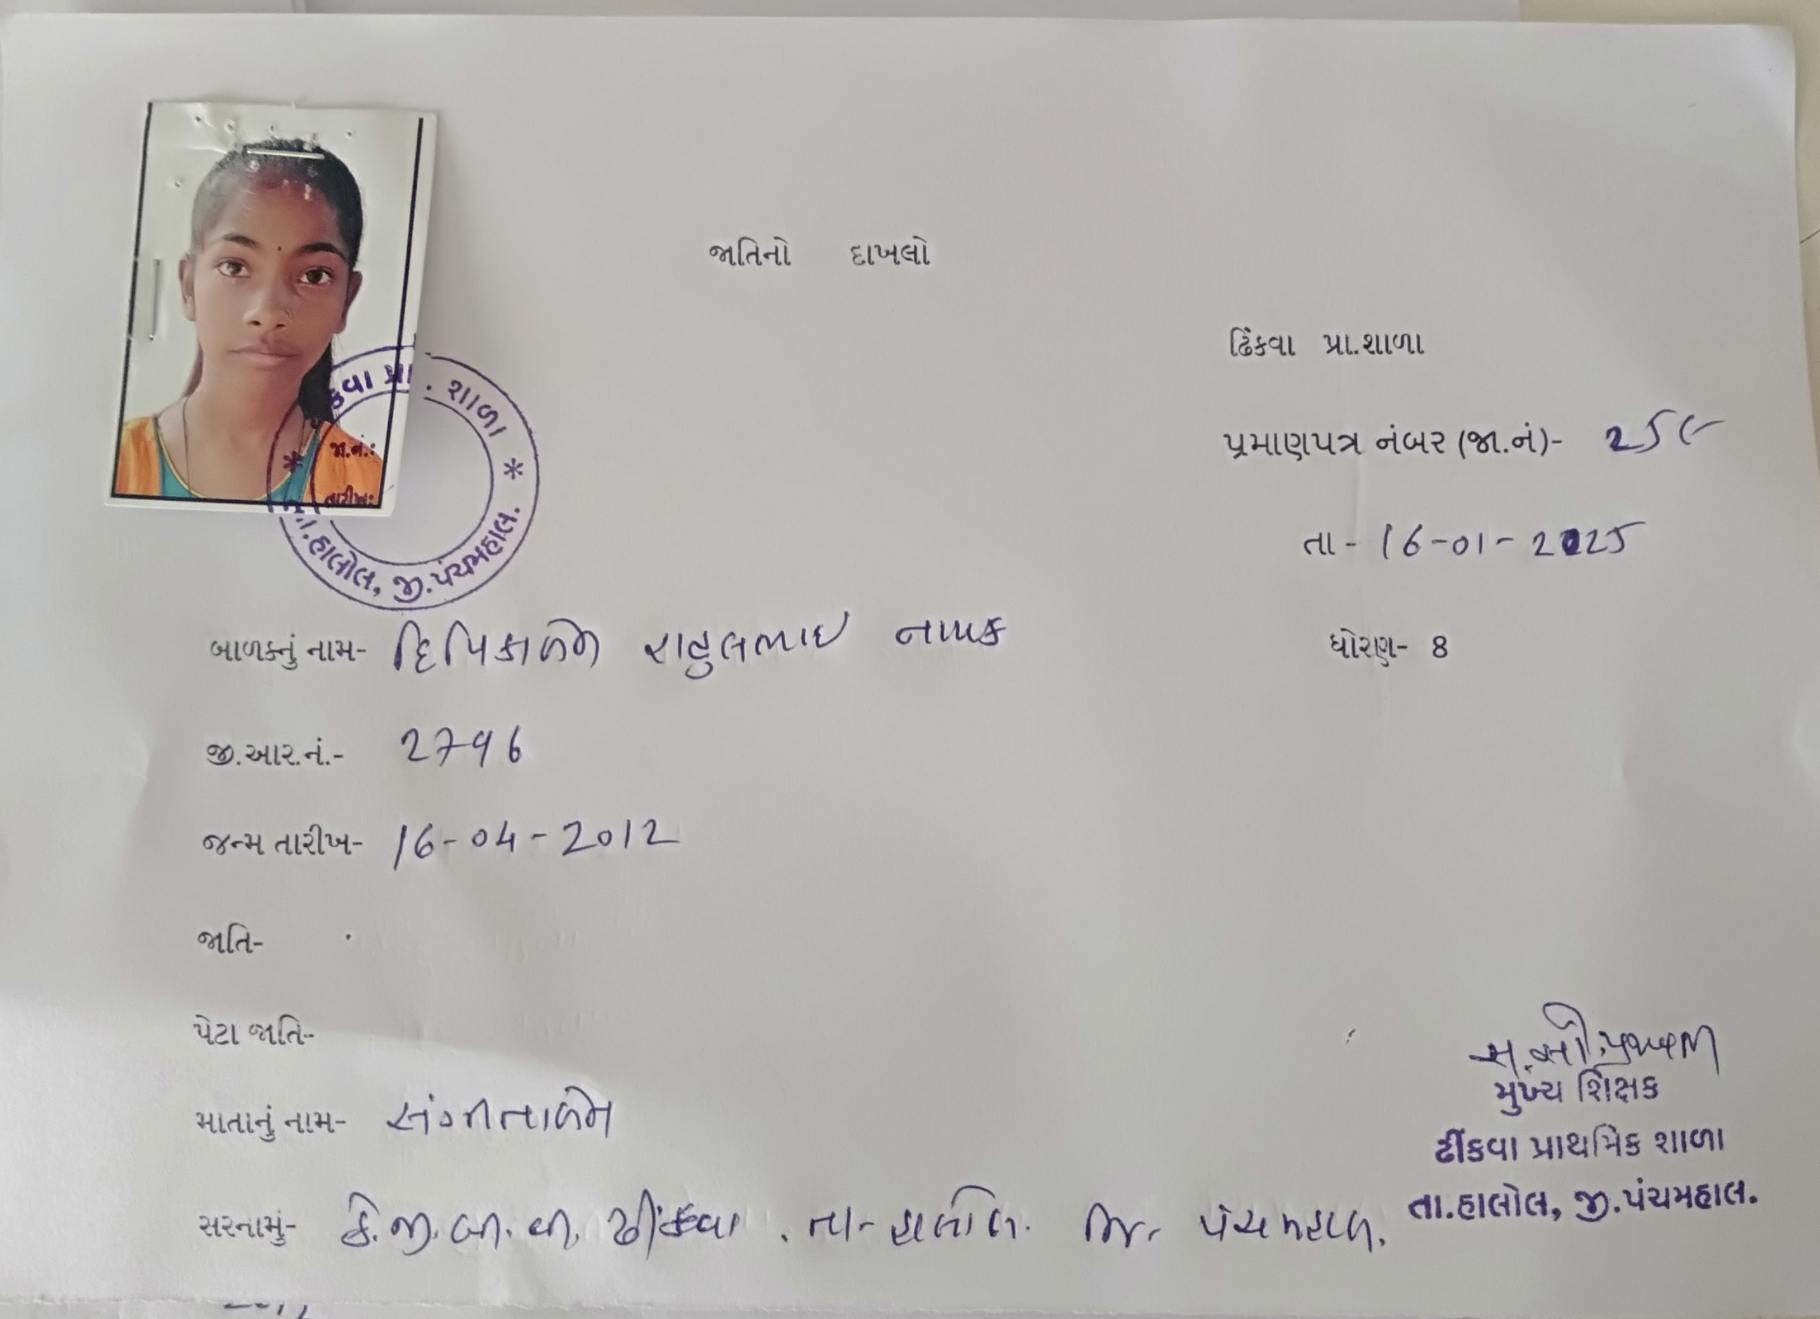 જાતિનો દાખલો
ઢિંકવા પ્રા.શાળા
પ્રમાણપત્ર નંબર (જા.નં)-
તા - 16-01-2025
કવા પ્રા. શાળા
જા.નં.:
તારીખ:
તા.હાલોલ, જી.પંચમહાલ.
બાળકનું નામ- દિપિકાબેન રાહુલભાઇ નાયક
ધોરણ- 8
જી.આર.નં.- 2796
જન્મ તારીખ- 16-04-2012
જાતિ-
પેટા જાતિ-
માતાનું નામ- સંગીતાબેન
મુખ્ય શિક્ષક
ઢીંકવા પ્રાથમિક શાળા
તા.હાલોલ, જી.પંચમહાલ.
સરનામું- કે.જી.બી.વી. ઢીંકવા. તા- હાલોલ. જિ. પંચમહાલ.